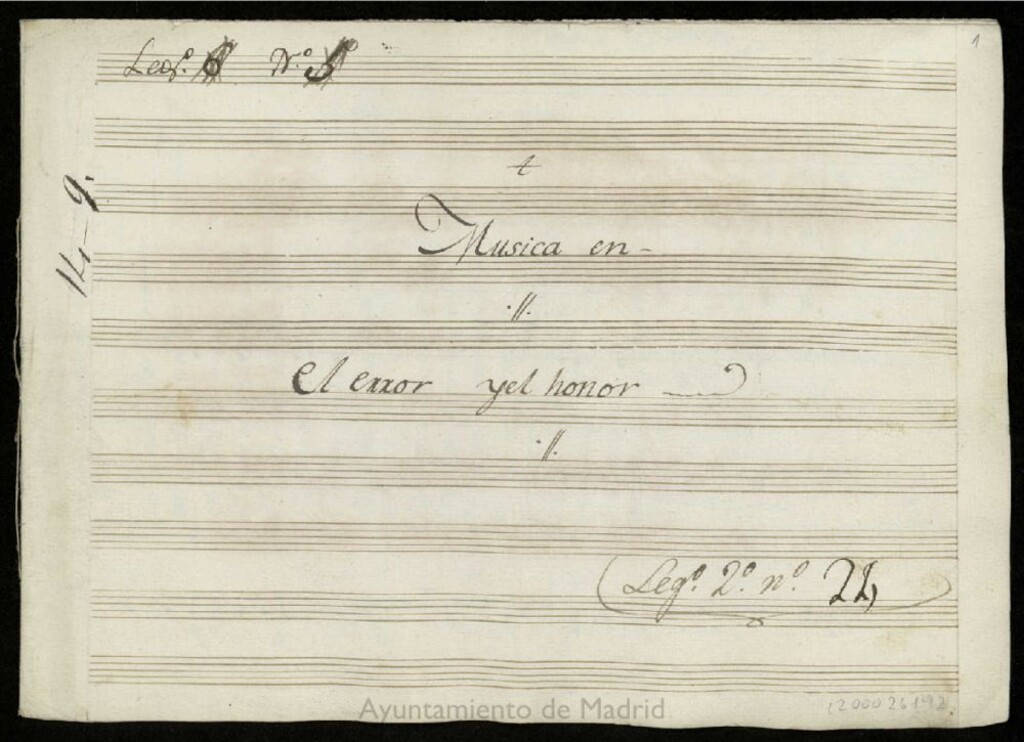 Leg.º 6 N.º 5º
1
14-9.
Musica en-
El error yel honor
(Leg.º 2.º n.º 24)
Ayuntamiento de Madrid
1200026192